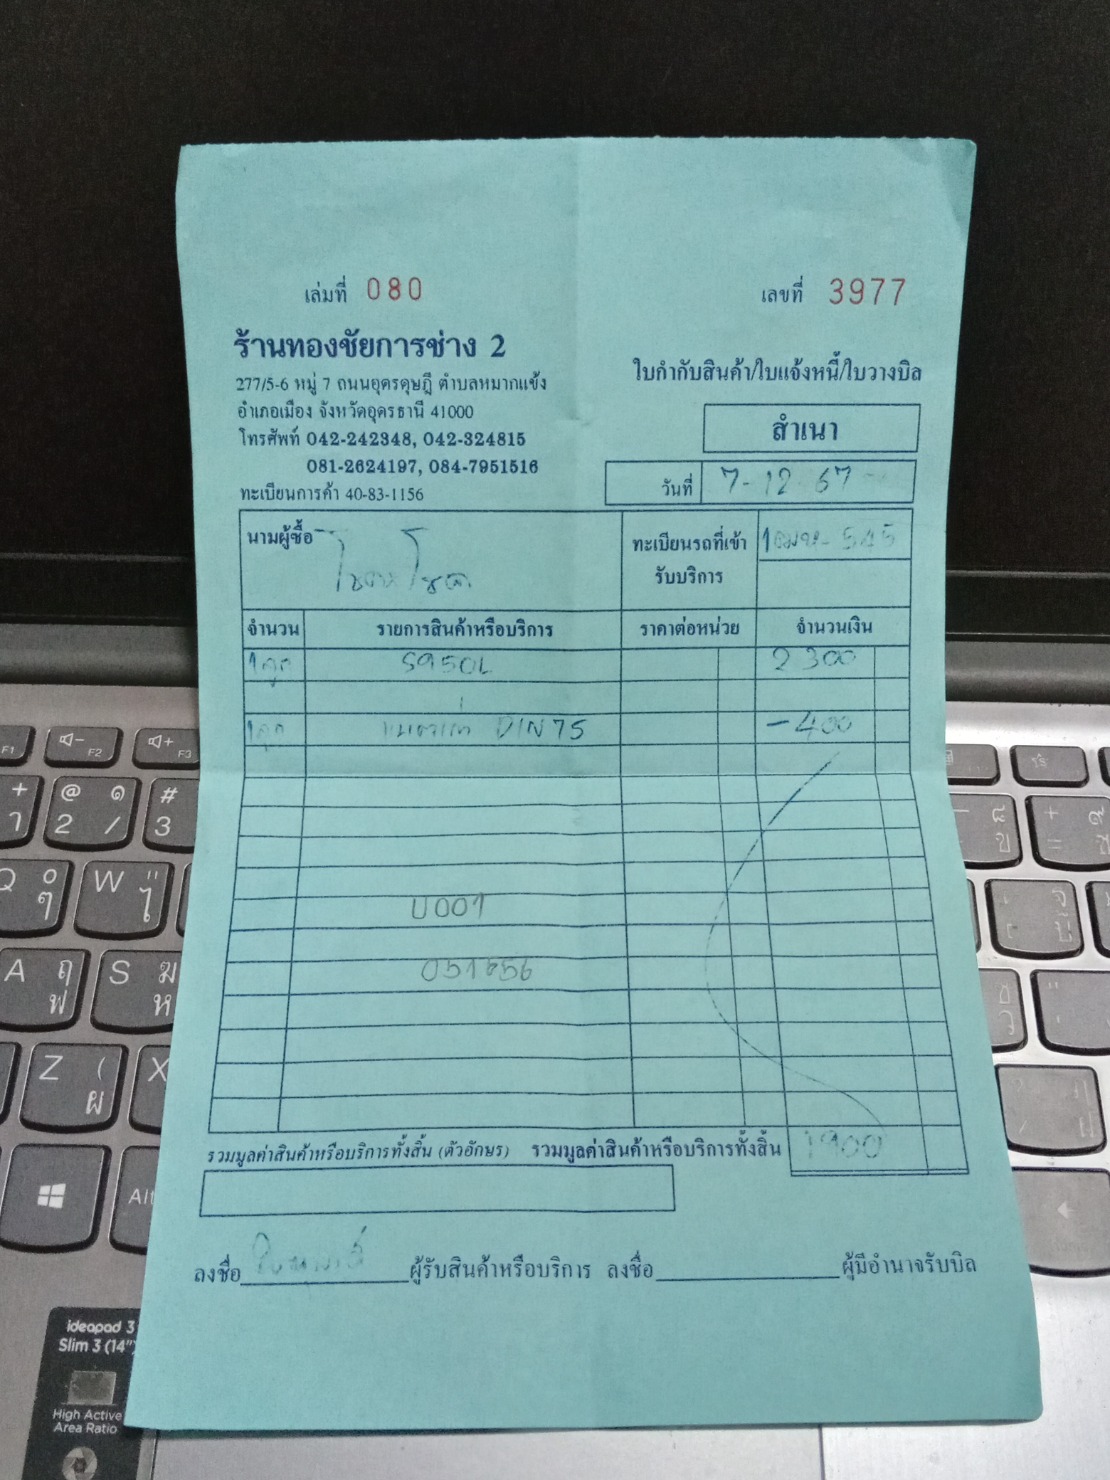 เล่มที่ 080
เลขที่ 3977
ร้านทองชัยการช่าง 2
277/5-6 หมู่ 7 ถนนอุดรดุษฎี ตำบลหมากแข้ง
อำเภอเมือง จังหวัดอุดรธานี 41000
โทรศัพท์ 042-242348, 042-324815
081-2624197, 084-7951516
ทะเบียนการค้า 40-83-1156
ใบกำกับสินค้า/ใบแจ้งหนี้/ใบวางบิล
สำเนา
วันที่ 7-12-67
นามผู้ซื้อ
ทะเบียนรถที่เข้ารับบริการ 545
จำนวน รายการสินค้าหรือบริการ ราคาต่อหน่วย จำนวนเงิน
1ลูก S950L 2300
1ลูก แบตเก่า DIN75 -400
U001
รวมมูลค่าสินค้าหรือบริการทั้งสิ้น (ตัวอักษร) รวมมูลค่าสินค้าหรือบริการทั้งสิ้น 1900
ลงชื่อ ผู้รับสินค้าหรือบริการ ลงชื่อ ผู้มีอำนาจรับบิล
F1 F2 F3
+ @ ๑ #
ๅ 2 / 3
Q ๐ W
ๆ ไ
A ฤ S ฆ
ฟ ห
Z ( X
ผ
Alt
ideapad 3
Slim 3 (14")
High Active
Area Ratio